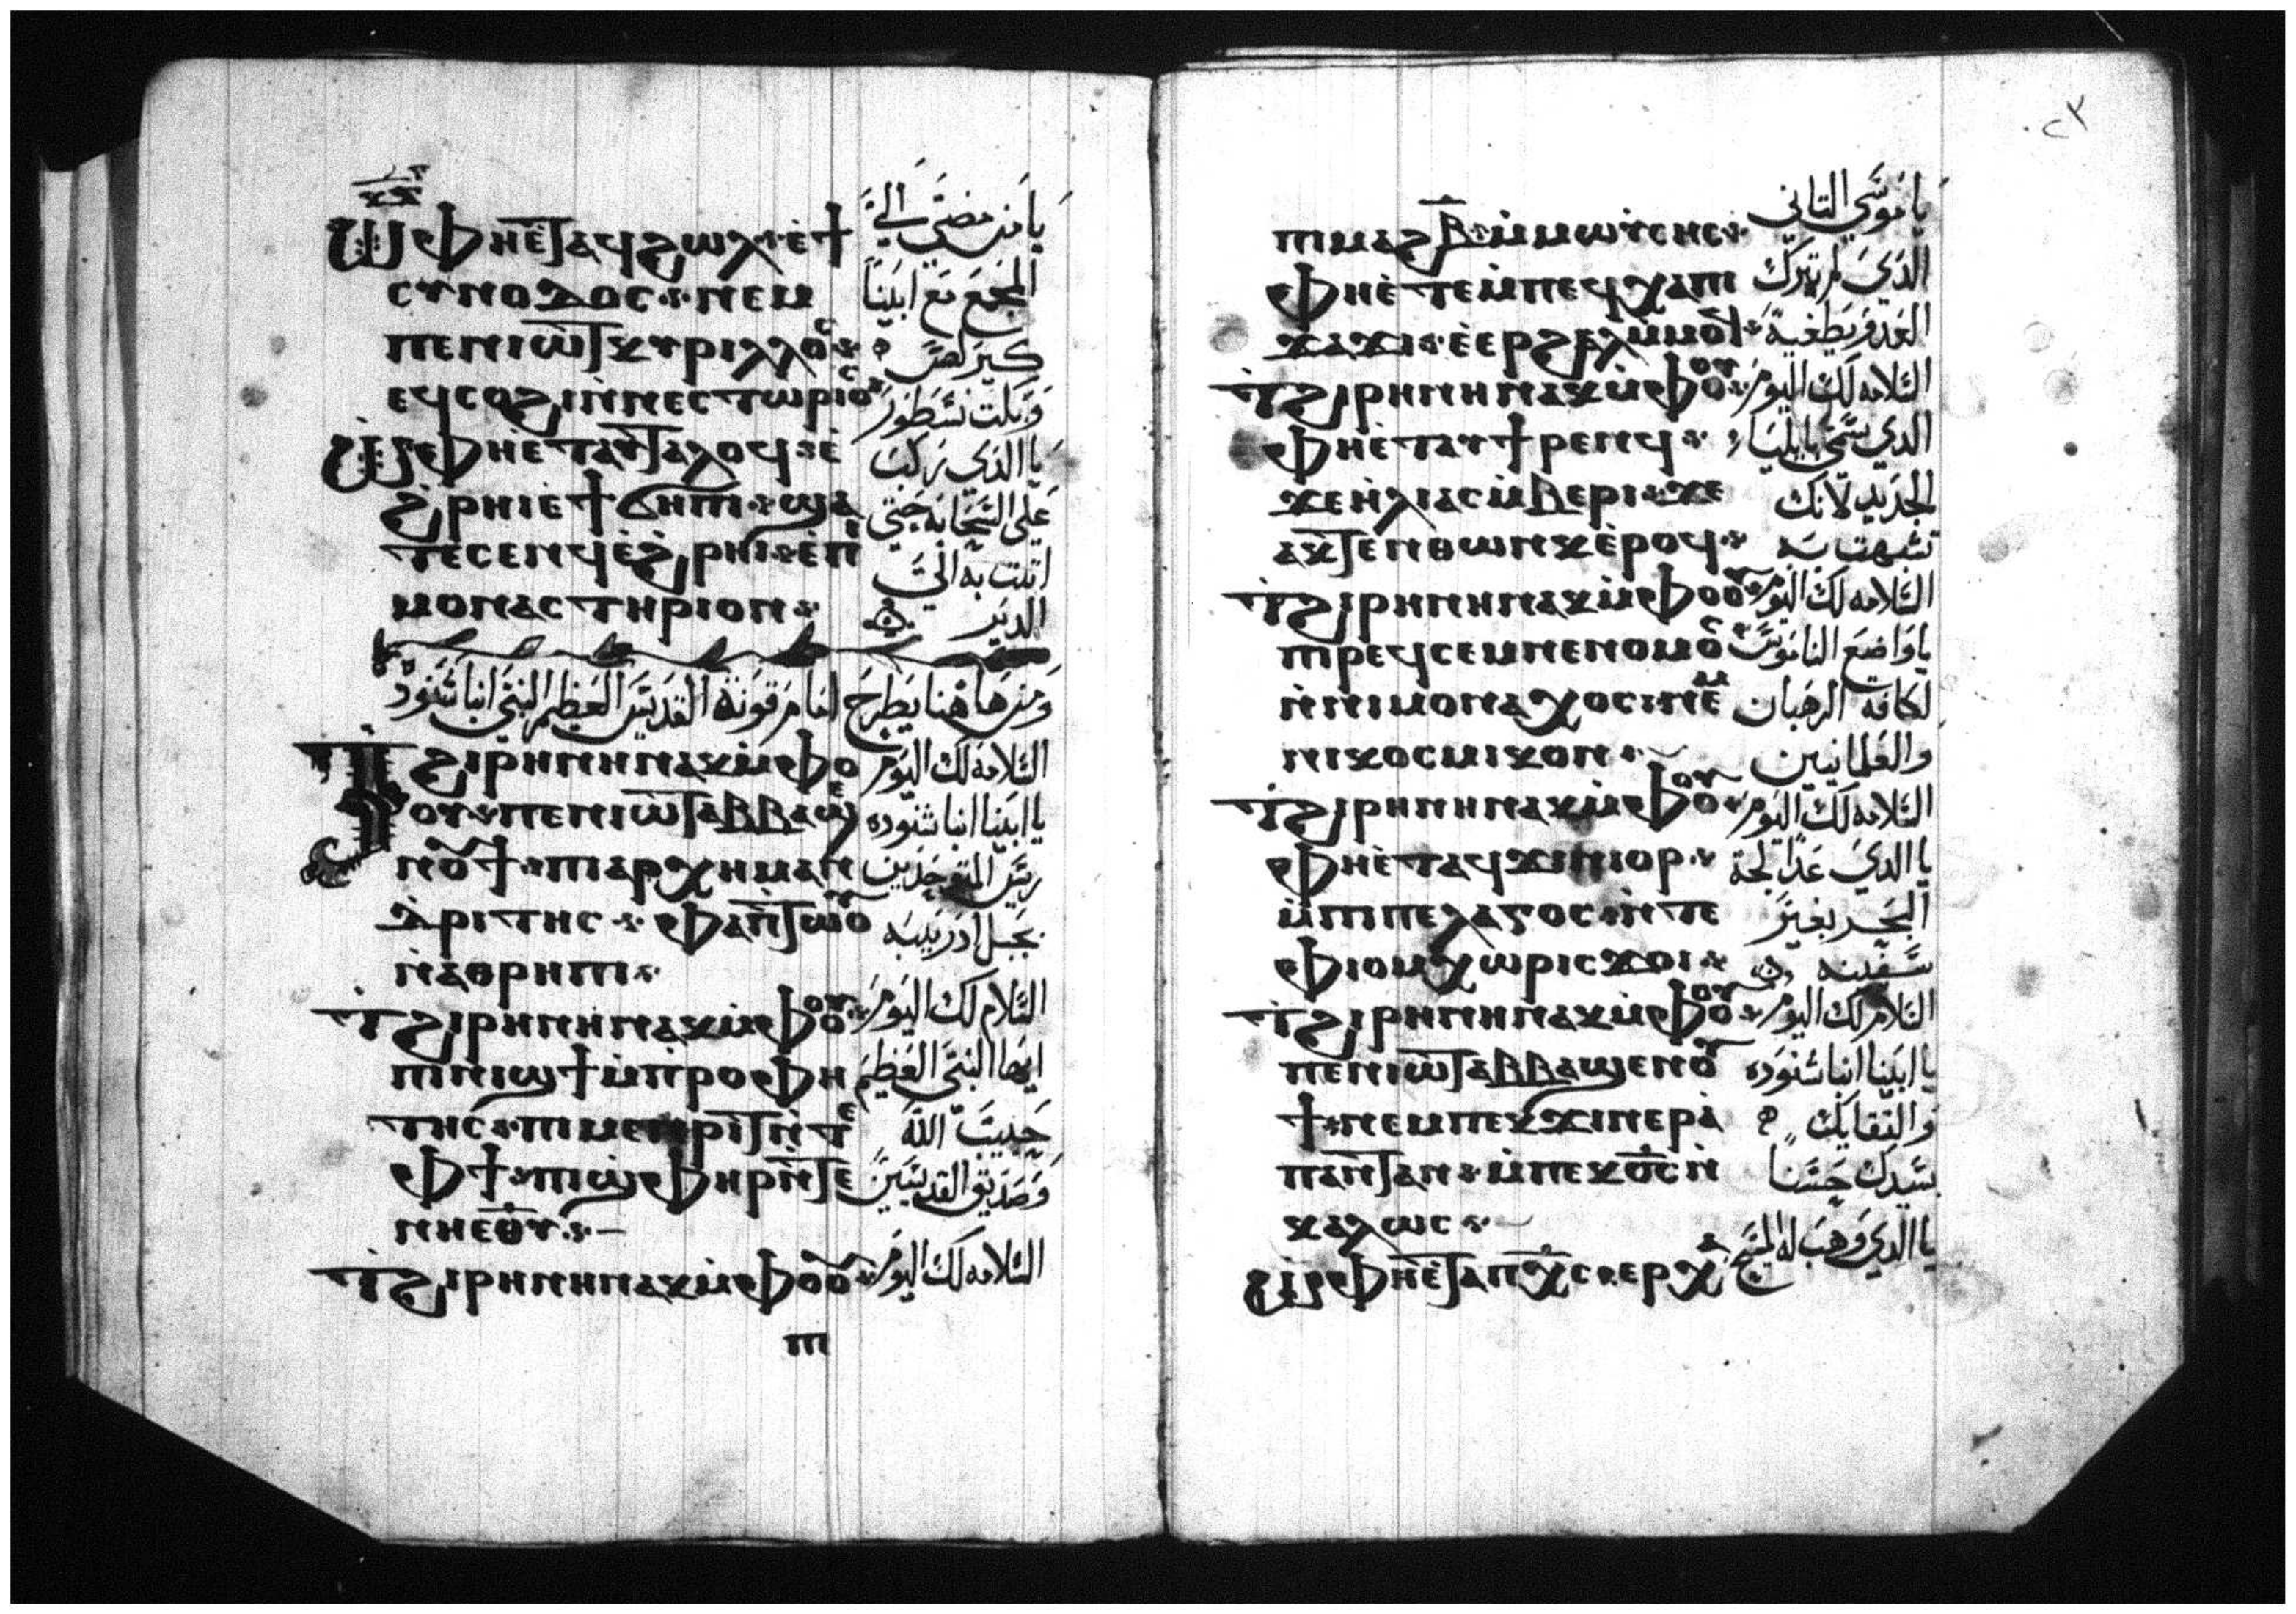 ⲕⲋ
Ⲱ ⲫⲏⲉ̀ⲧⲁϥϩⲱⲗ ⲉ̀ϯ يا من مضى الى
ⲥⲩⲛⲟⲇⲟⲥ ⲛⲉⲙ المجمع مع ابينا
ⲡⲉⲛⲓⲱⲧ ⲕⲩⲣⲓⲗⲗⲟⲥ كيرلص
ⲉϥⲥⲟϩⲓ ⲛ̀ⲛⲉⲥⲧⲱⲣⲓⲟⲥ وبكت نسطور
Ⲱ ⲫⲏⲉ̀ⲧⲁⲩⲧⲁⲗⲟϥ ⲉ̀ يا الذي ركب
ϩ̀ⲣⲏⲓ ⲉ̀ϯϭⲏⲡⲓ ϣⲁ على السحابه حتى
ⲧⲉⲥⲉⲛϥ ⲉ̀ϩ̀ⲣⲏⲓ ⲉ̀ⲡⲓ اتت به الى
ⲙⲟⲛⲁⲥⲧⲏⲣⲓⲟⲛ الدير
ومن هاهنا يطرح لنا مرقونة القديس العظيم النبي انبا شنوده
Ϯϩⲓⲣⲏⲛⲏ ⲛⲁⲕ ⲙ̀ⲫⲟ السلامه لك اليوم
ⲟⲩ ⲡⲉⲛⲓⲱⲧ ⲁⲃⲃⲁ ϣⲉ يا ابينا انبا شنوده
ⲛⲟⲩϯ ⲡⲓⲁⲣⲭⲏⲙⲁⲛ ريس المتوحدين
ⲇⲣⲓⲧⲏⲥ ⲫⲁⲡ̀ⲧⲱⲟⲩ بجبل ادريبه
ⲛ̀ⲁⲑⲣⲏⲡⲓ
ϯϩⲓⲣⲏⲛⲏ ⲛⲁⲕ ⲙ̀ⲫⲟⲟⲩ السلام لك اليوم
ⲡⲓⲛⲓϣϯ ⲙ̀ⲡⲣⲟⲫⲏ ايها النبي العظيم
ⲧⲏⲥ ⲡⲓⲙⲉⲛⲣⲓⲧ ⲛ̀ⲧⲉ حبيب الله
ⲫϯ ⲡⲓϣⲫⲏⲣ ⲛ̀ⲧⲉ وصديق القديسين
ⲛⲏⲉⲑⲩ
ϯϩⲓⲣⲏⲛⲏ ⲛⲁⲕ ⲙ̀ⲫⲟⲟⲩ السلامه لك اليوم
ⲡⲓ
٢٣
ⲡⲓⲙⲁϩⲃ̅ ⲙ̀ⲙⲱⲩⲥⲏⲥ يا موسى التاني
ⲫⲏⲉ̀ⲧⲉⲙ̀ⲡⲉϥⲭⲁⲡⲓ الذي لم تترك
ϫⲁϫⲓ ⲉ̀ⲉⲣϩⲉⲗ ⲙ̀ⲙⲟⲓ العدو يطغيه
ϯϩⲓⲣⲏⲛⲏ ⲛⲁⲕ ⲙ̀ⲫⲟⲟⲩ السلامه لك اليوم
ⲫⲏⲉ̀ⲧⲁⲩϯⲣⲉⲛϥ الدي سمى بايليا
ϫⲉ ⲏ̀ⲗⲓⲁⲥ ⲙ̀ⲃⲉⲣⲓ ϫⲉ الجديد لانك
ⲁⲕⲧⲉⲛⲑⲱⲛⲕ ⲉ̀ⲣⲟϥ تشبهت به
ϯϩⲓⲣⲏⲛⲏ ⲛⲁⲕ ⲙ̀ⲫⲟⲟⲩ السلامه لك اليوم
ⲡⲓⲣⲉϥⲥⲉⲙⲛⲉⲛⲟⲙⲟⲥ يا واضع الناموس
ⲛ̀ⲛⲓⲙⲟⲛⲁⲭⲟⲥ ⲛⲉⲙ لكافه الرهبان
ⲛⲓⲕⲟⲥⲙⲓⲕⲟⲛ والعلمانيين
ϯϩⲓⲣⲏⲛⲏ ⲛⲁⲕ ⲙ̀ⲫⲟⲟⲩ السلامه لك اليوم
ⲫⲏⲉ̀ⲧⲁϥϫⲓⲛⲓⲟⲣ يا الدي عدا لجة
ⲙ̀ⲡⲓⲡⲉⲗⲁⲅⲟⲥ ⲛ̀ⲧⲉ البحر بغير
ⲫⲓⲟⲙ ⲭⲱⲣⲓⲥ ϫⲟⲓ سفينه
ϯϩⲓⲣⲏⲛⲏ ⲛⲁⲕ ⲙ̀ⲫⲟⲟⲩ السلام لك اليوم
ⲡⲉⲛⲓⲱⲧ ⲁⲃⲃⲁ ϣⲉⲛⲟⲩ يا ابينا انبا شنوده
ϯ ⲛⲉⲙ ⲡⲉⲕϫⲓⲛⲉⲣⲁ̀ والتقايك
ⲡⲁⲛⲧⲁⲛ ⲙ̀ⲡⲉⲕⲟ̅ⲥ̅ ⲛ̀ بسيدك حسنا
ⲕⲁⲗⲱⲥ
Ⲱ ⲫⲏⲉ̀ⲧⲁⲡⲭⲥ ⲉⲣⲭⲁ يا الدي وهب له المسيح